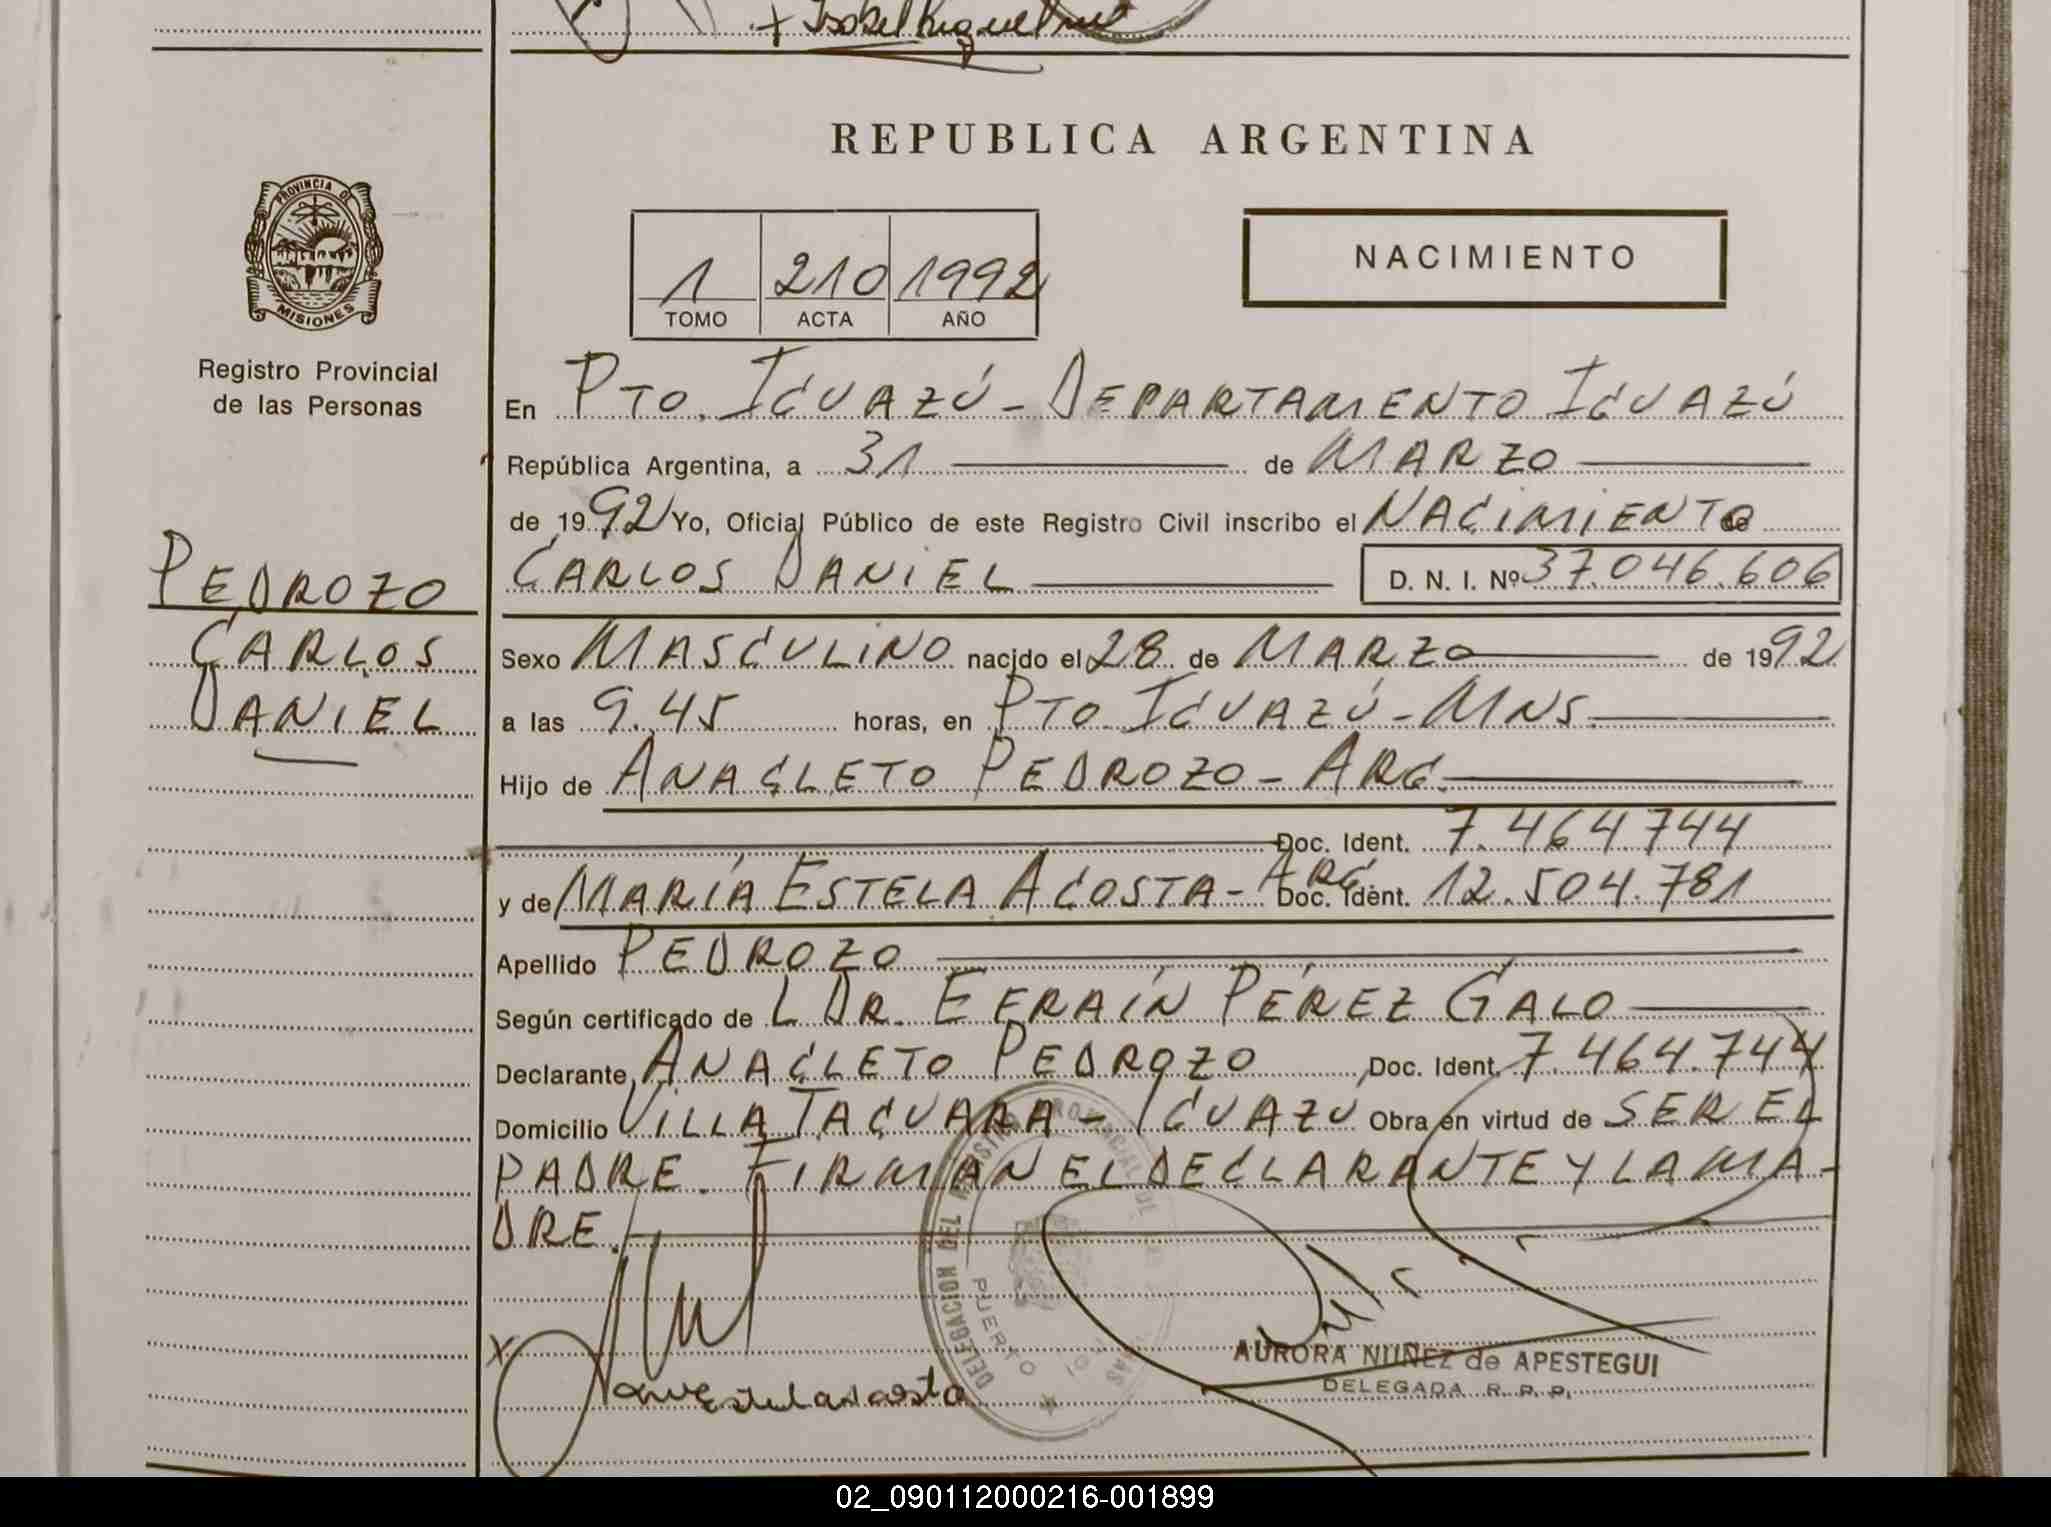 + Isabel Riquelme
REPUBLICA ARGENTINA
PROVINCIA DE
MISIONES
Registro Provincial
de las Personas
1 210 1992
TOMO ACTA AÑO
NACIMIENTO
En PTO. IGUAZÚ - DEPARTAMENTO IGUAZÚ
República Argentina, a 31 de MARZO
de 1992 Yo, Oficial Público de este Registro Civil inscribo el NACIMIENTO de
CARLOS DANIEL D. N. I. Nº 37.046.606
PEDROZO
CARLOS
DANIEL
Sexo MASCULINO nacido el 28 de MARZO de 1992
a las 9.45 horas, en PTO. IGUAZÚ - MNS.
Hijo de ANACLETO PEDROZO - ARG.
Doc. Ident. 7.464.744
y de MARÍA ESTELA ACOSTA - ARG. Doc. Ident. 12.504.781
Apellido PEDROZO
Según certificado de L DR. EFRAÍN PÉREZ GALO
Declarante ANACLETO PEDROZO, Doc. Ident. 7.464.744
Domicilio VILLA TACUARA - IGUAZÚ Obra en virtud de SER EL
PADRE. FIRMAN EL DECLARANTE Y LA MA-
DRE.
DELEGACION DEL REGISTRO PROVINCIAL DE LAS
PUERTO
X
AURORA NUÑEZ de APESTEGUI
DELEGADA R. P. P.
Estela Acosta
02_090112000216-001899